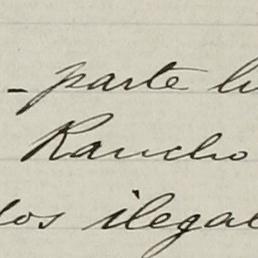 - parte l
Rancho
los ilegal